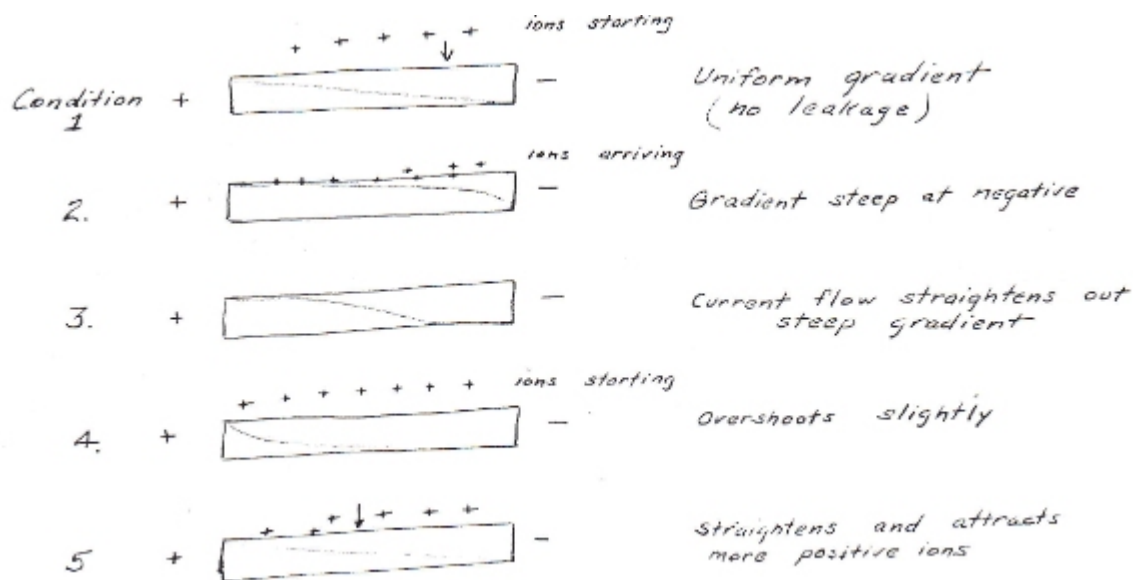 + + + + + ions starting
Condition 1 + − Uniform gradient
(no leakage)
ions arriving
+ + + + + + + +
2. + − Gradient steep at negative
3. + − Current flow straightens out
steep gradient
+ + + + + + + ions starting
4. + − Overshoots slightly
+ + + + + +
5 + − Straightens and attracts
more positive ions